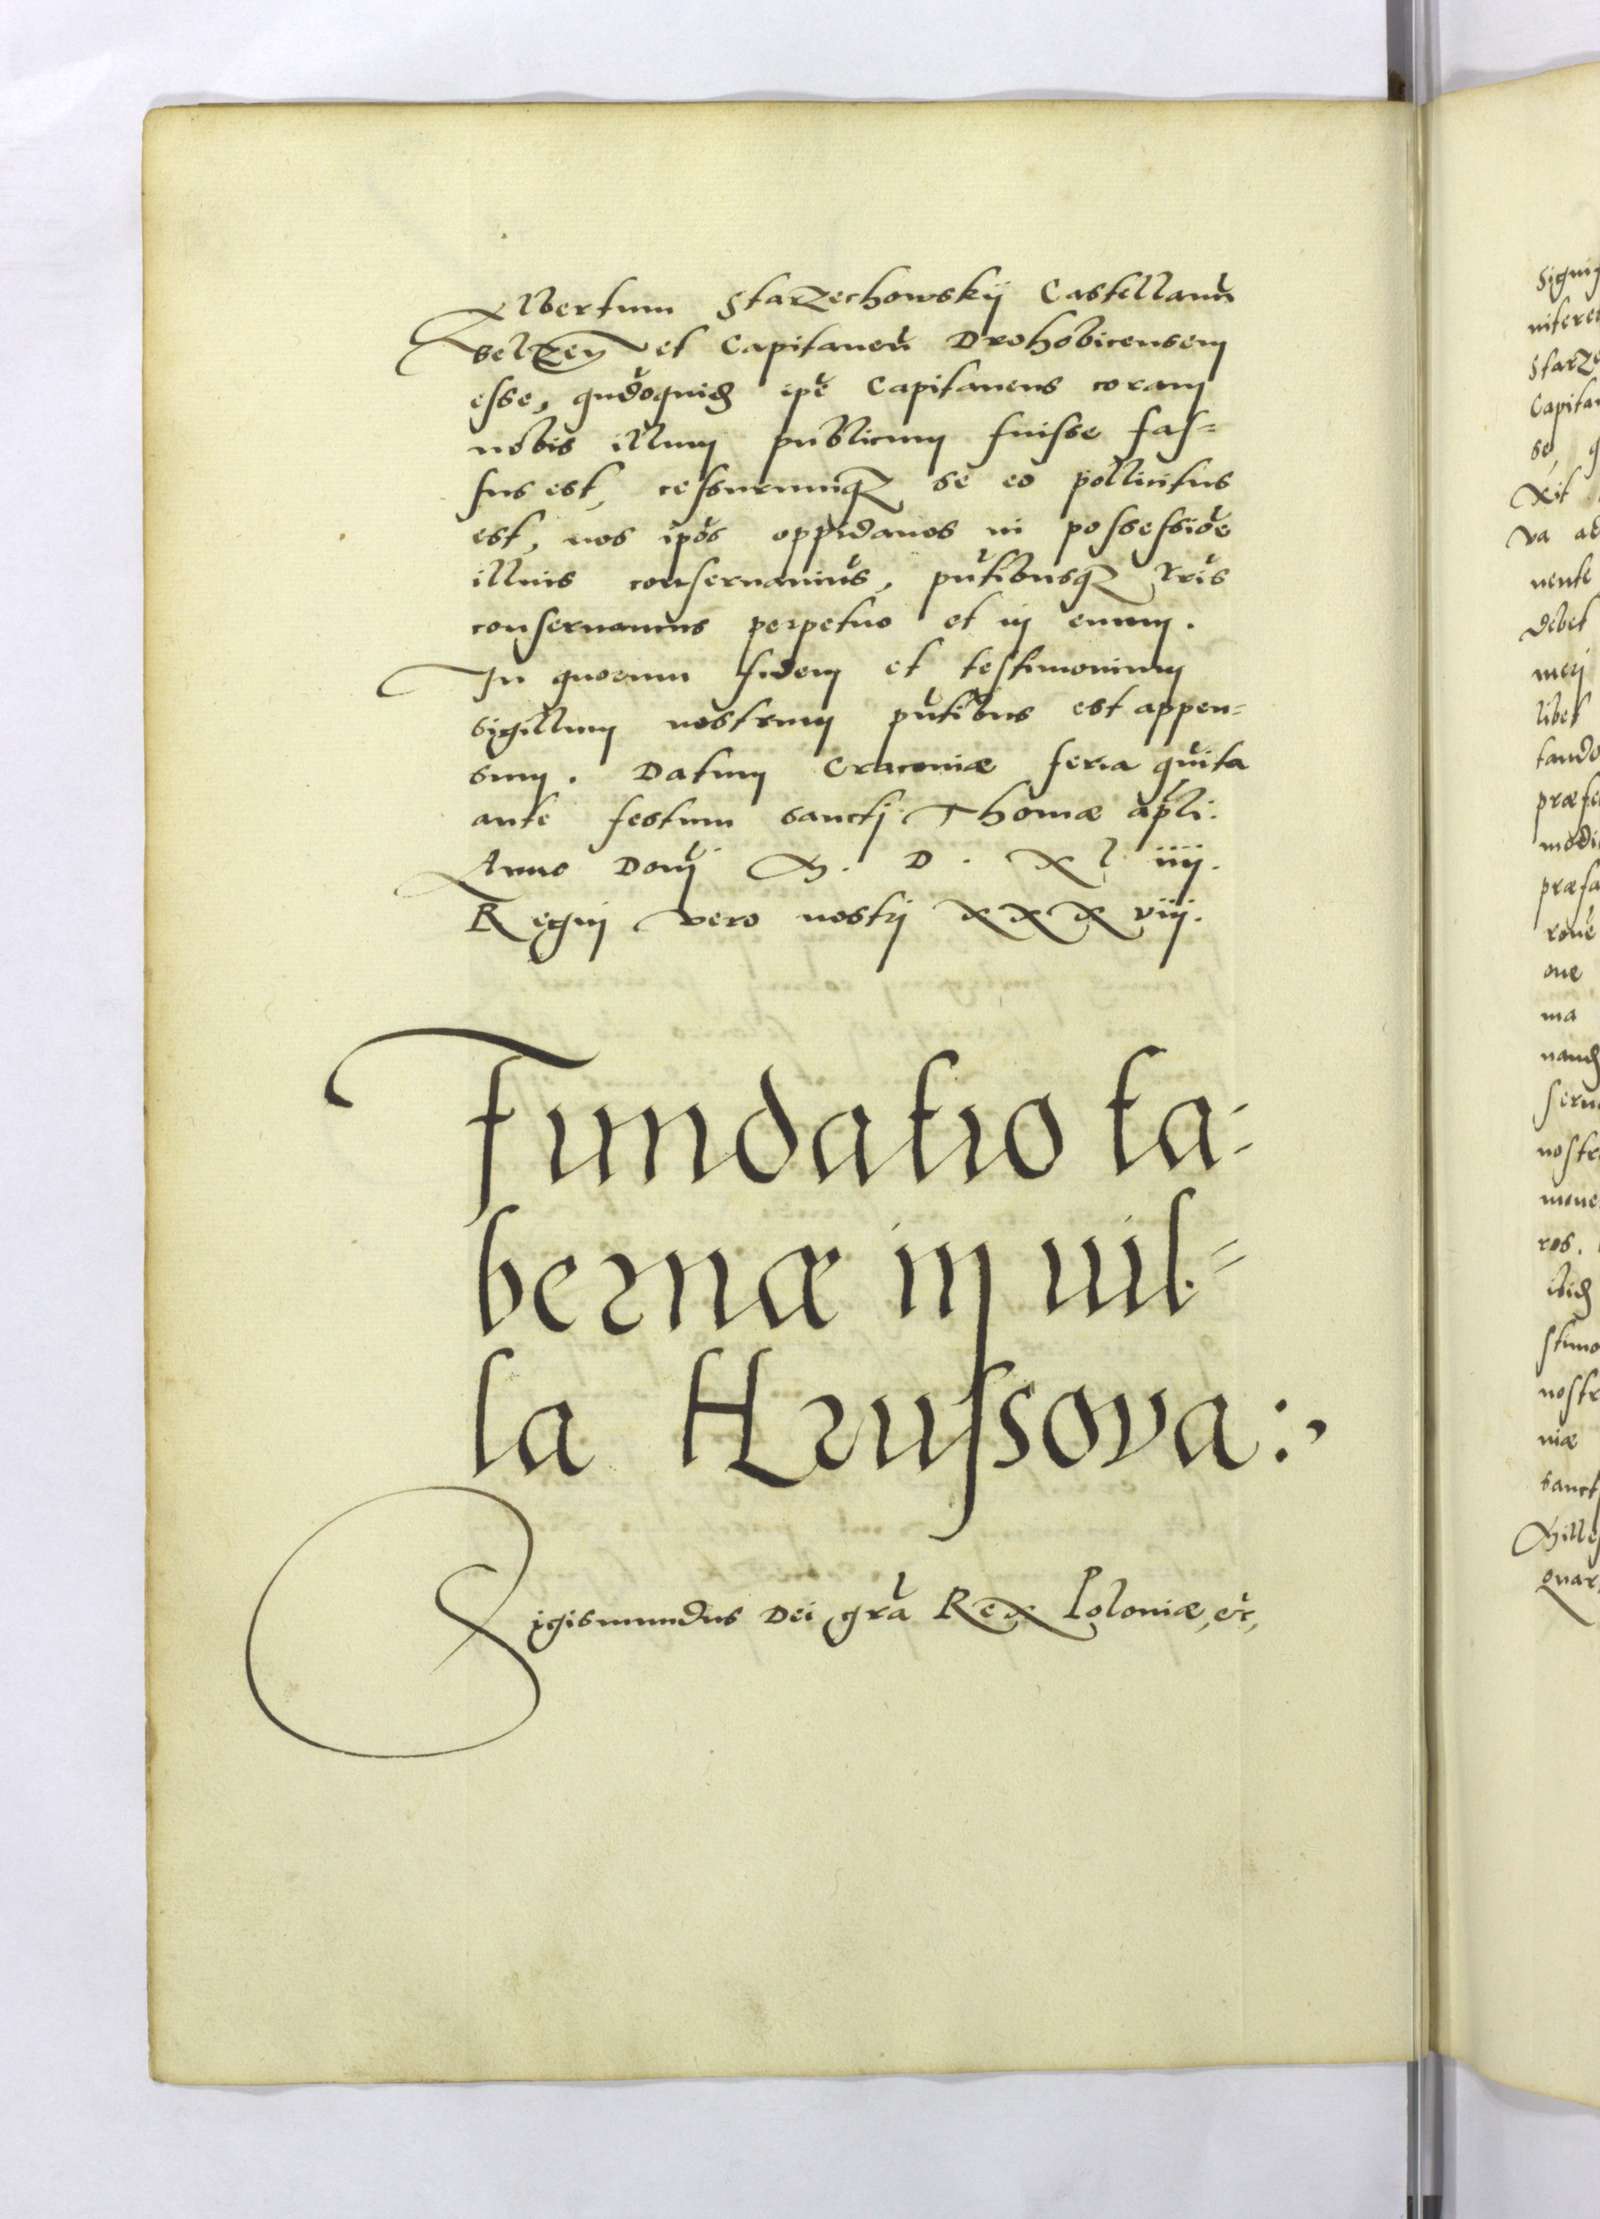 Albertum Starzechowskij Castellanū
Belzen et Capitaneū Drohobicensem
esse, qn̄doquidē ip̄e Capitaneus coram
nobis illum publicum fuisse fas=
sus est, cessurumq₃ se eo pollicitus
est, nos ip̄os oppidanos in possessiōe
illius conseruauim̄s, pn̄tibusq₃ lr̄is
conseruamus perpetuo et in eunm.
In quorum fidem et testimonium
sigillum nostrum pn̄tibus est appen=
sum. Datum Cracouiæ feria quīta
ante festum sancti Thomæ ap̄li.
Anno Dom̄i M. D. Xl iiii.
Regni vero nostri XXX viii.
Fundatio ta-
bernæ in uil=
la Hrussova:,
Sigismundus Dei gr̄a Rex Poloniæ, etc̄,
Signi
Starze
Capita
se, q
xit
va ad
nente
debet
meij
libet
tando
præfe
modi
præfa
roue
one
ma
seru
nostr
moue
ros.
ibid
stimo
nostr
niæ
sanct
Mille
quar